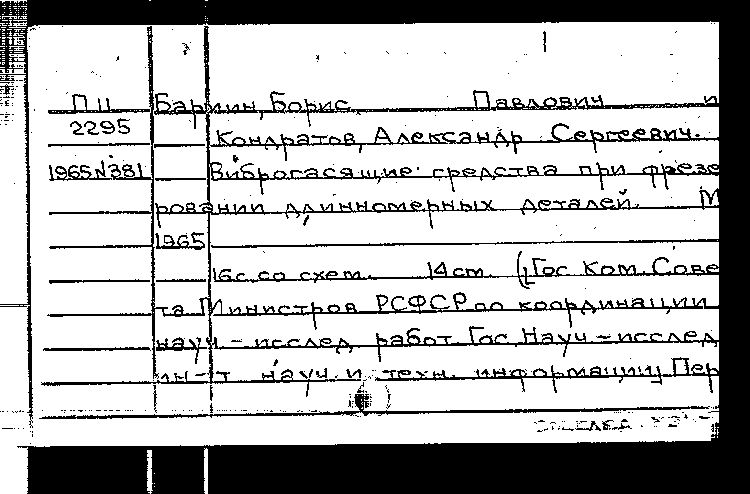 П 11 Бармин, Борис Павлович и
2295 Кондратов, Александр Сергеевич.
1965 №381 Виброгасящие средства при фрезе
ровании длинномерных деталей. М
1965
16 с. со схем. 14 см. (Гос Ком. Сове
та Министров РСФСР по координации
науч-исслед работ Гос. Науч-исслед
ин-т науч. и техн. информации) Пер